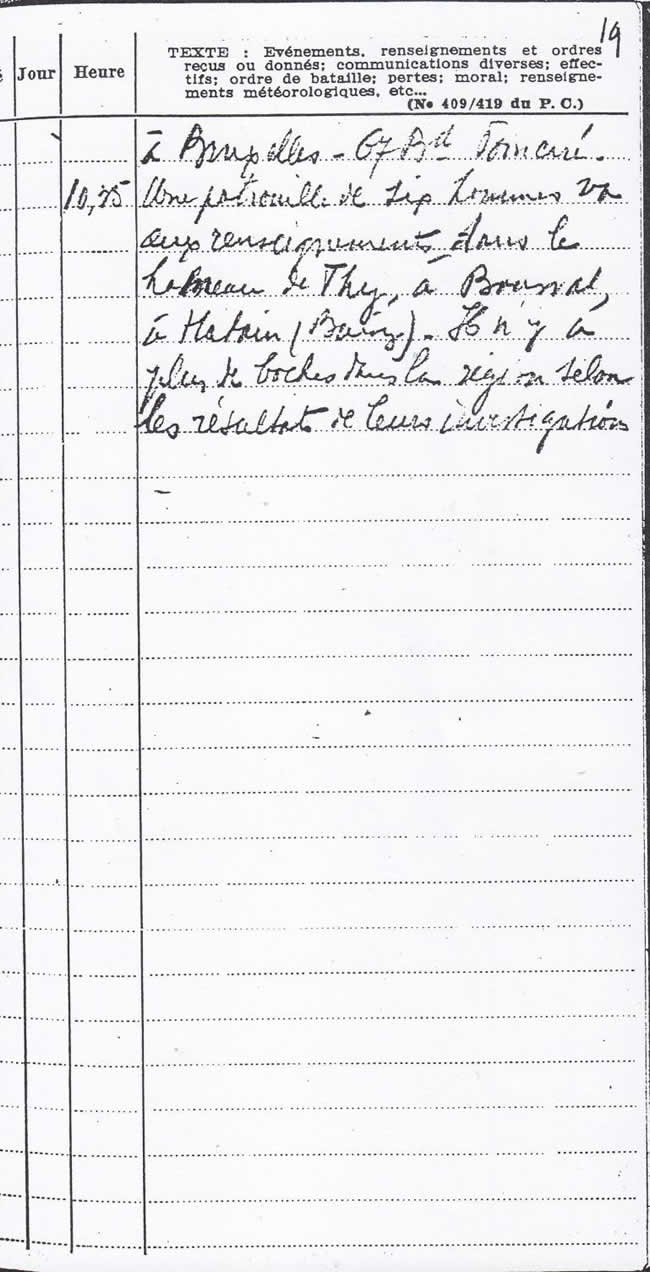 19
Jour
Heure
TEXTE : Evénements, renseignements et ordres
reçus ou donnés; communications diverses; effec-
tifs; ordre de bataille; pertes; moral; renseigne-
ments météorologiques, etc...
(No 409/419 du P. C.)
à Bruxelles - 67 Bd Poincaré.
10,35 Une patrouille de six hommes va
aux renseignements dans le
hameau de Thy, à Bousval,
à Hattain (Baisy). Il n'y a
plus de boches dans la région selon
les résultats de leurs investigations